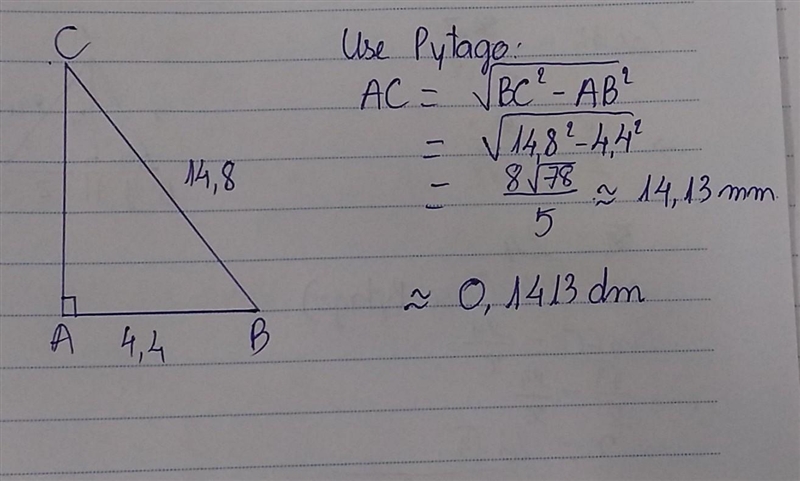 C
14,8
A
4,4
B
Use Pytago:
AC = √BC² - AB²
= √14,8² - 4,4²
= 8√78/5 ≈ 14,13 mm
≈ 0,1413 dm